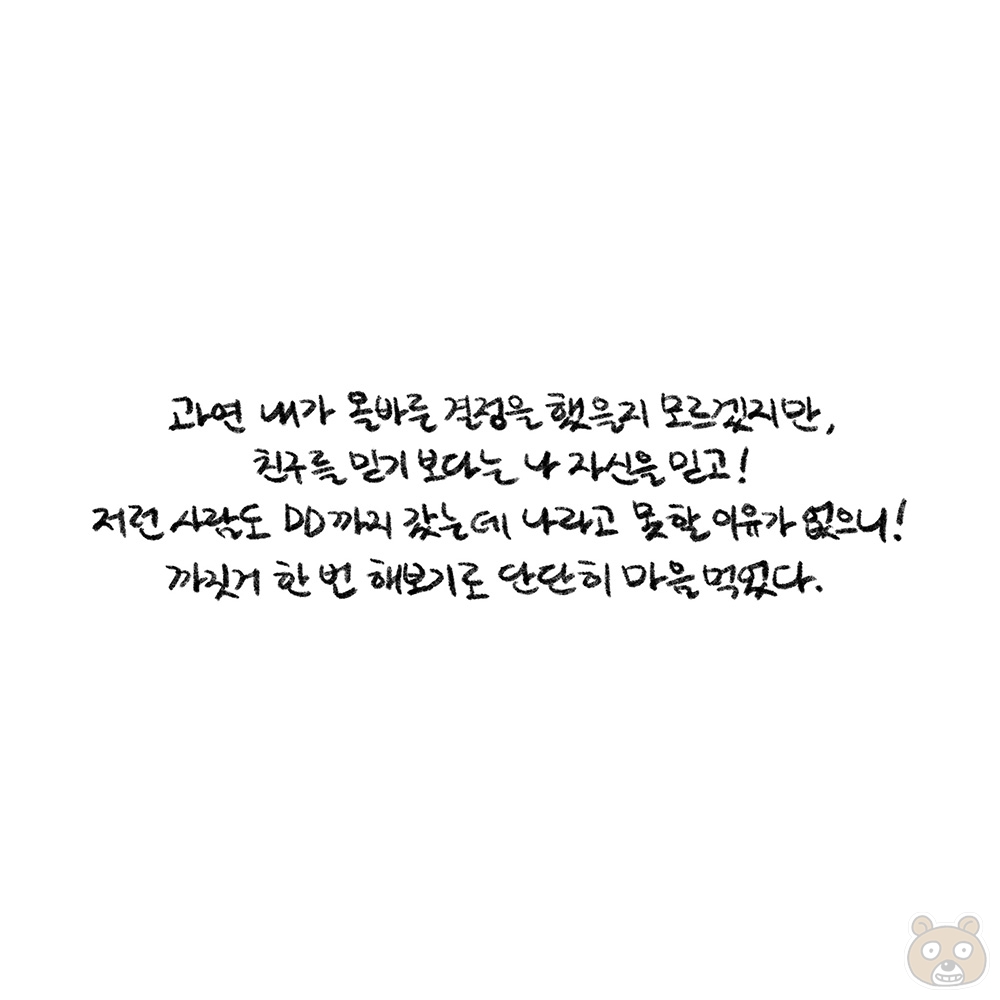 과연 내가 올바른 결정을 했을지 모르겠지만,
친구를 믿기 보다는 나 자신을 믿고!
저런 사람도 DD까지 갔는데 나라고 못할 이유가 없으니!
까짓거 한 번 해보기로 단단히 마음 먹었다.